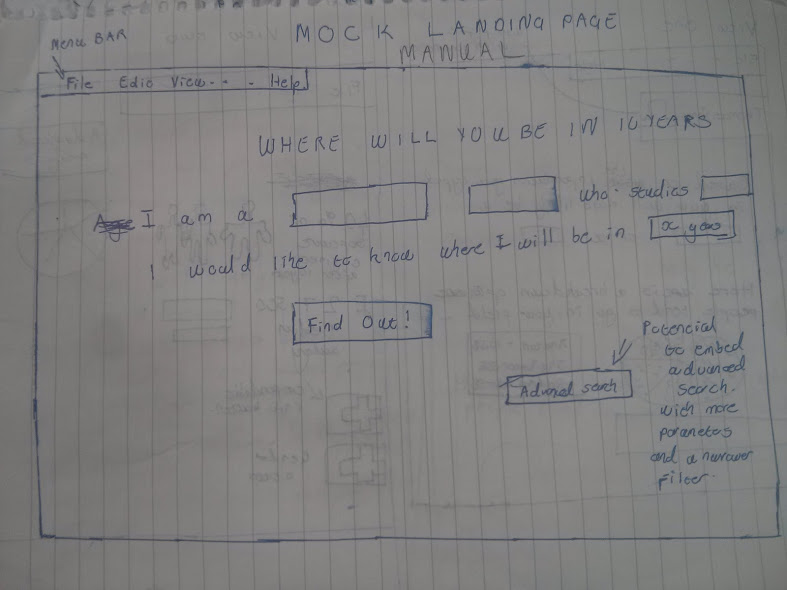 MOCK LANDING PAGE
MANUAL
Menu BAR
File Edit View - - - Help
WHERE WILL YOU BE IN 10 YEARS
I am a who studies
I would like to know where I will be in x years
Find Out!
Potencial
to embed
advanced
search.
with more
parameters
and a narrower
Filter.
Advanced search